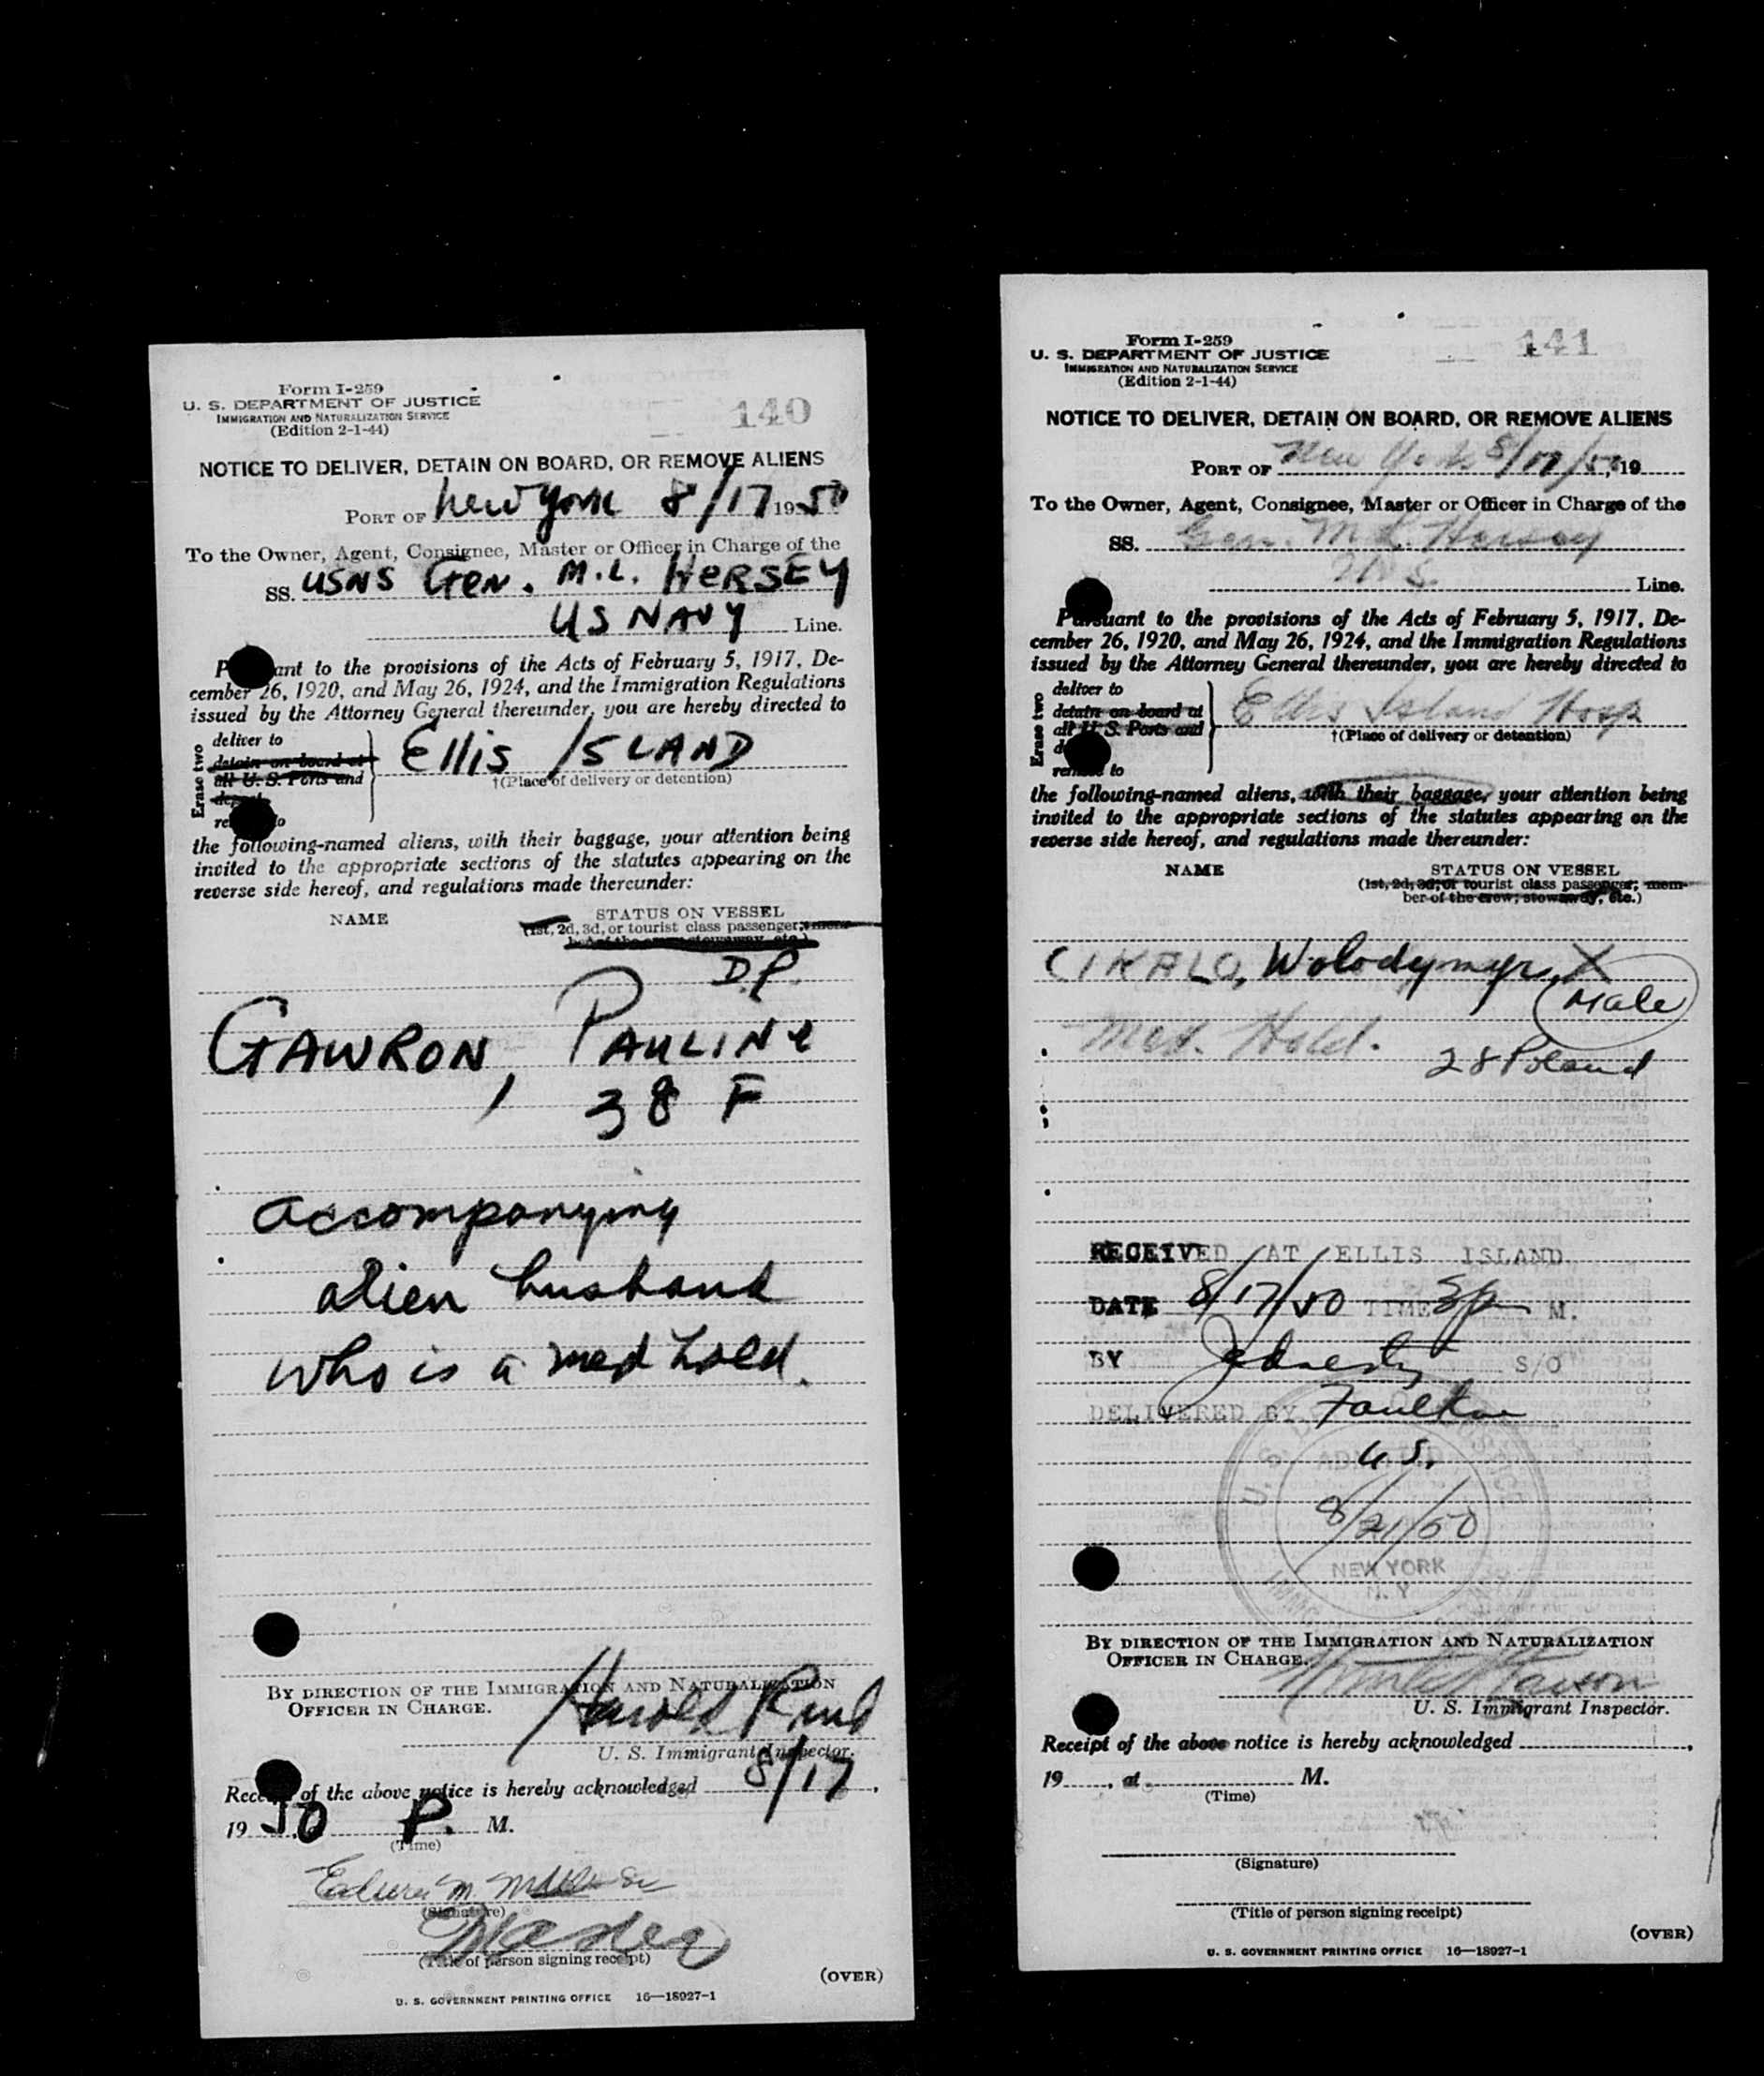 Form I-259
U. S. DEPARTMENT OF JUSTICE
IMMIGRATION AND NATURALIZATION SERVICE
(Edition 2-1-44)
140
NOTICE TO DELIVER, DETAIN ON BOARD, OR REMOVE ALIENS
PORT OF New York 8/17 1950
To the Owner, Agent, Consignee, Master or Officer in Charge of the
SS. USNS Gen. M.L. HERSEY
US NAVY Line.
P ant to the provisions of the Acts of February 5, 1917, De-
cember 26, 1920, and May 26, 1924, and the Immigration Regulations
issued by the Attorney General thereunder, you are hereby directed to
Erase two
deliver to
detain on board at
all U. S. Ports and
re to
Ellis ISLAND
†(Place of delivery or detention)
the following-named aliens, with their baggage, your attention being
invited to the appropriate sections of the statutes appearing on the
reverse side hereof, and regulations made thereunder:
NAME STATUS ON VESSEL
(1st, 2d, 3d, or tourist class passenger;
D.P.
GAWRON, PAULINE
38 F
accompanying
alien husband
who is a med hold.
BY DIRECTION OF THE IMMIGRATION AND NATURALIZATION
OFFICER IN CHARGE.
Harold
U. S. Immigrant Inspector.
Rece of the above notice is hereby acknowledged 8/17,
19 50 P. M.
(Time)
M.
(Signature)
(Title of person signing receipt)
(OVER)
U. S. GOVERNMENT PRINTING OFFICE 16—18927-1
Form I-259
U. S. DEPARTMENT OF JUSTICE
IMMIGRATION AND NATURALIZATION SERVICE
(Edition 2-1-44)
141
NOTICE TO DELIVER, DETAIN ON BOARD, OR REMOVE ALIENS
PORT OF New York 8/17/50, 19
To the Owner, Agent, Consignee, Master or Officer in Charge of the
SS. Gen. M. L. Hersey
Line.
Pursuant to the provisions of the Acts of February 5, 1917, De-
cember 26, 1920, and May 26, 1924, and the Immigration Regulations
issued by the Attorney General thereunder, you are hereby directed to
Erase two
deliver to
detain on board at
all U. S. Ports and
d
remove to
Ellis Island Hosp
†(Place of delivery or detention)
the following-named aliens, with their baggage, your attention being
invited to the appropriate sections of the statutes appearing on the
reverse side hereof, and regulations made thereunder:
NAME STATUS ON VESSEL
(1st, 2d, 3d, or tourist class passenger; mem-
ber of the crew; stowaway, etc.)
CIKALO, Wolodymyr X
Male
Med. Hold.
28 Poland
RECEIVED AT ELLIS ISLAND
DATE 8/17/50 TIME 3 p M.
BY S/O
DELIVERED BY
U.S.
ADMITTED
8/21/50
NEW YORK
N. Y
BY DIRECTION OF THE IMMIGRATION AND NATURALIZATION
OFFICER IN CHARGE.
U. S. Immigrant Inspector.
Receipt of the above notice is hereby acknowledged
19 , at M.
(Time)
(Signature)
(Title of person signing receipt)
(OVER)
U. S. GOVERNMENT PRINTING OFFICE 16—18927-1